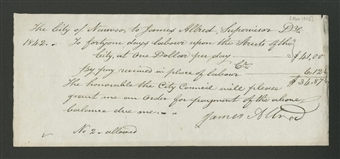 The City of Nauvoo, to James Allred, Supervisor Dr.
1842. To fortyone days labour upon the Streets of the
City, at one Dollar per day $41,00
Cr.
By pay received in place of labour 6.12½
$34.87½
The honorable the City Council will please
grant me an order for payment of the above
balance due me.
James Allred
No 2 - allowed